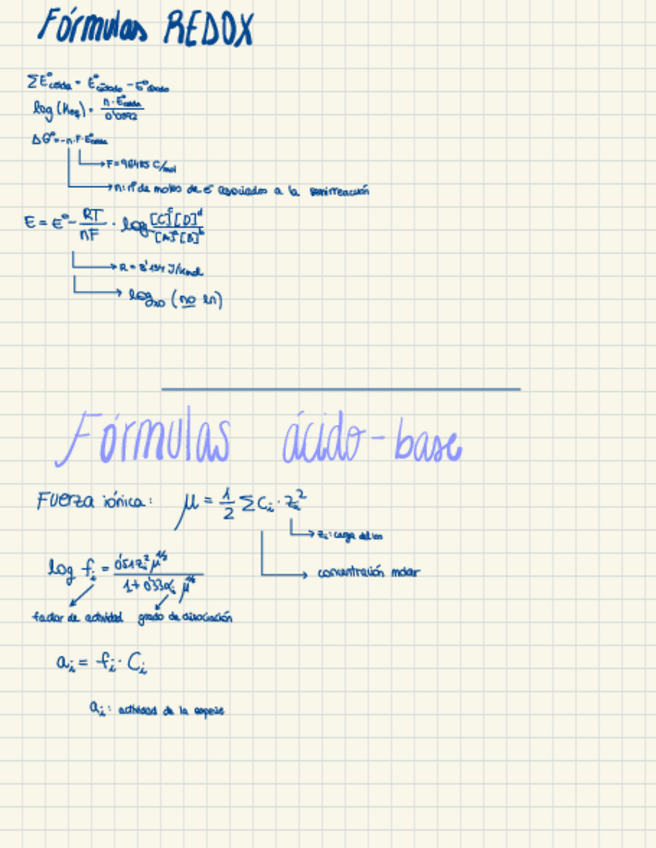 Fórmulas REDOX
ΣE°celda = E°cátodo - E°ánodo
log (Keq) = n·E°celda / 0'0592
ΔG° = -n·F·E°celda
F = 96485 C/mol
n: nº de moles de e⁻ asociados a la semirreacción
E = E° - RT/nF · log [C]^c [D]^d / [A]^a [B]^b
R = 8'134 J/kmol
log₁₀ (no ln)
Fórmulas ácido-base
Fuerza iónica: μ = 1/2 Σ Ci · Zi²
Zi: carga del ion
concentración molar
log fi = 0'51 Zi² μ^1/2 / 1 + 0'33 αi μ^1/2
factor de actividad grado de disociación
ai = fi · Ci
ai: actividad de la especie